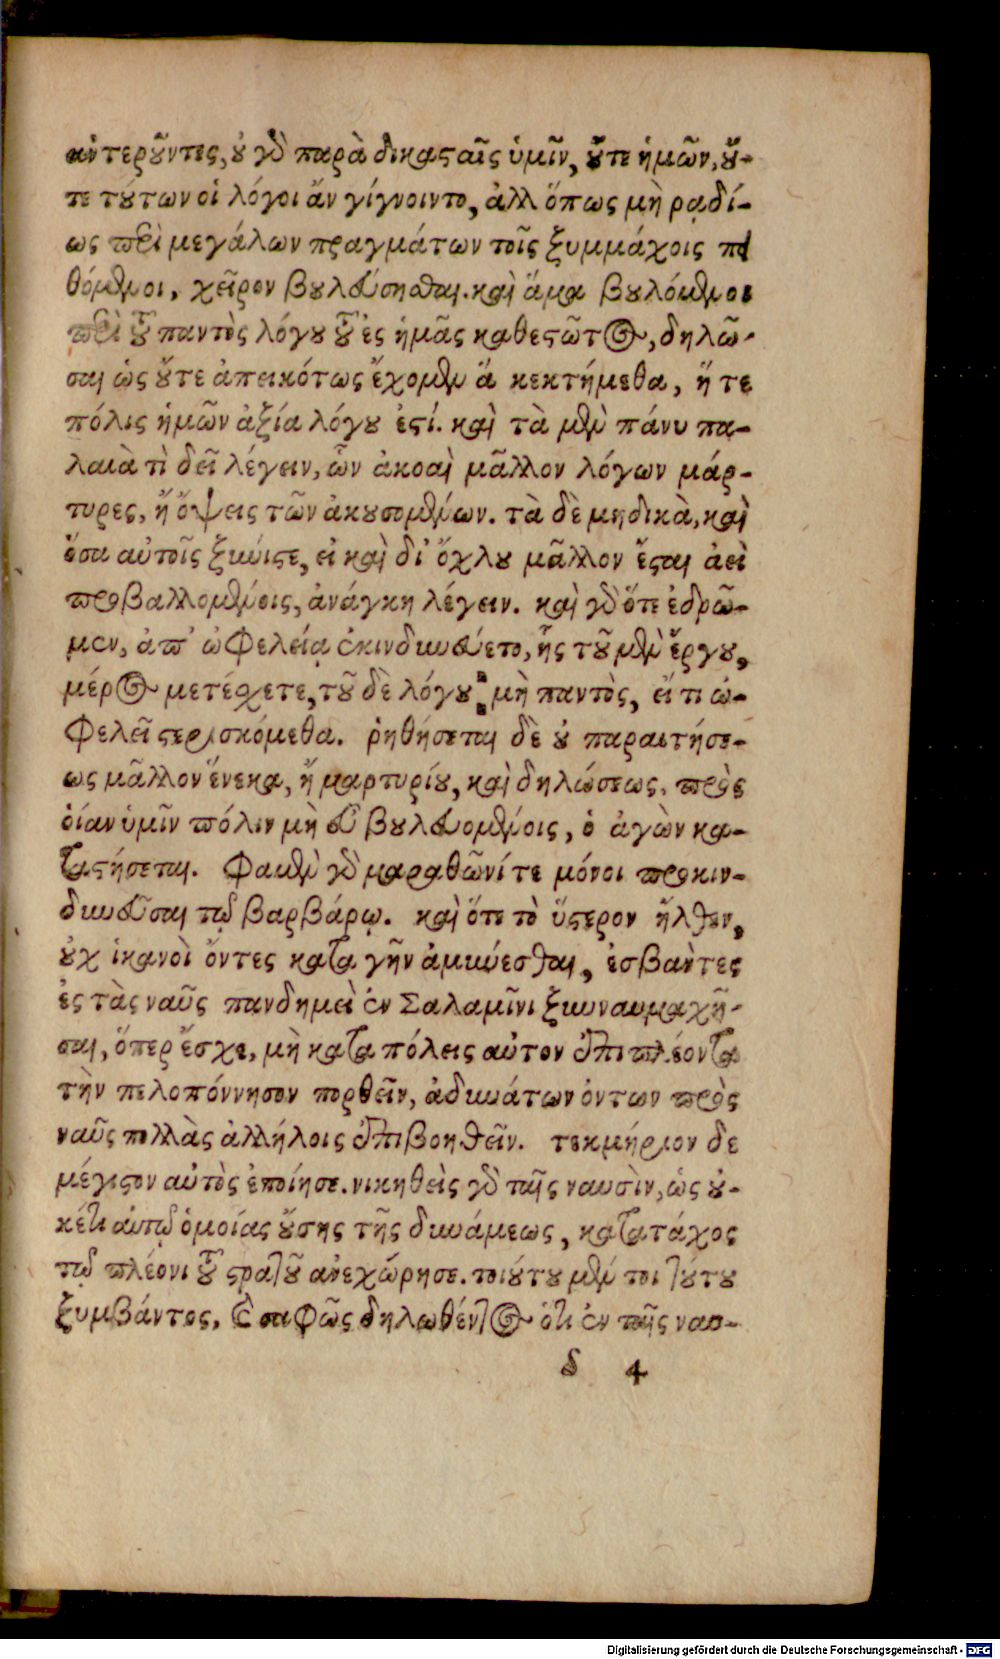 αντεροῦντες, οὐ γὰρ παρὰ δικασταῖς ὑμῖν, οὔτε ἡμῶν, οὔ-
τε τούτων οἱ λόγοι ἂν γίγνοιντο, ἀλλ ὅπως μὴ ραδί-
ως περὶ μεγάλων πραγμάτων τοῖς ξυμμάχοις πει
θόμενοι, χεῖρον βουλεύσησθαι. καὶ ἅμα βουλόμενοι
περὶ τοῦ παντὸς λόγου τοῦ ἐς ἡμᾶς καθεστῶτος, δηλῶ-
σαι ὡς οὔτε ἀπεικότως ἔχομεν ἃ κεκτήμεθα, ἥ τε
πόλις ἡμῶν ἀξία λόγου ἐστί. καὶ τὰ μὲν πάνυ πα-
λαιὰ τὶ δεῖ λέγειν, ὧν ἀκοαὶ μᾶλλον λόγων μάρ-
τυρες, ἢ ὄψεις τῶν ἀκουσομένων. τὰ δὲ μηδικὰ, καὶ
ὅσα αὐτοῖς ξύνιστε, εἰ καὶ δι' ὄχλου μᾶλλον ἔσται ἀεὶ
προβαλλομένοις, ἀνάγκη λέγειν. καὶ γὰρ ὅτε ἐδρῶ-
μεν, ἀπ' ὠφελείᾳ ἐκινδυνεύετο, ἧς τοῦ μὲν ἔργου,
μέρος μετέχετε, τοῦ δὲ λόγου μὴ παντὸς, εἴ τι ὠ-
φελεῖ στερισκόμεθα. ῥηθήσεται δὲ οὐ παραιτήσε-
ως μᾶλλον ἕνεκα, ἢ μαρτυρίου, καὶ δηλώσεως. πρὸς
ὁίαν ὑμῖν πόλιν μὴ εὖ βουλευομένοις, ὁ ἀγὼν κα-
ταστήσεται. Φαμὲν γὰρ μαραθῶνί τε μόνοι προκιν-
δυνεῦσαι τῷ βαρβάρῳ. καὶ ὅτε τὸ ὕστερον ἦλθεν,
οὐχ ἱκανοὶ ὄντες κατα γῆν ἀμύνεσθαι, ἐσβαντες
ἐς τὰς ναῦς πανδημεὶ ἐν Σαλαμῖνι ξυναυμαχῆ-
σαι, ὅπερ ἔσχε, μὴ κατα πόλεις αὐτον ἐπιπλέοντα
τὴν πελοπόννησον πορθεῖν, ἀδυνάτων όντων πρὸς
ναῦς πολλὰς ἀλλήλοις ἐπιβοηθεῖν. τεκμήριον δε
μέγιστον αὐτὸς ἐποίησε. νικηθεὶς γὰρ ταῖς ναυσὶν, ὡς οὐ-
κέτι αὐτῷ ὁμοίας οὔσης τῆς δυνάμεως, κατα τάχος
τῷ πλέονι τοῦ στρατοῦ ανεχώρησε. τοιούτου μέν τοι τούτου
ξυμβάντος, καὶ σαφῶς δηλωθέντος ὅτι ἐν ταῖς ναυ-
δ 4
Digitalisierung gefördert durch die Deutsche Forschungsgemeinschaft - DFG